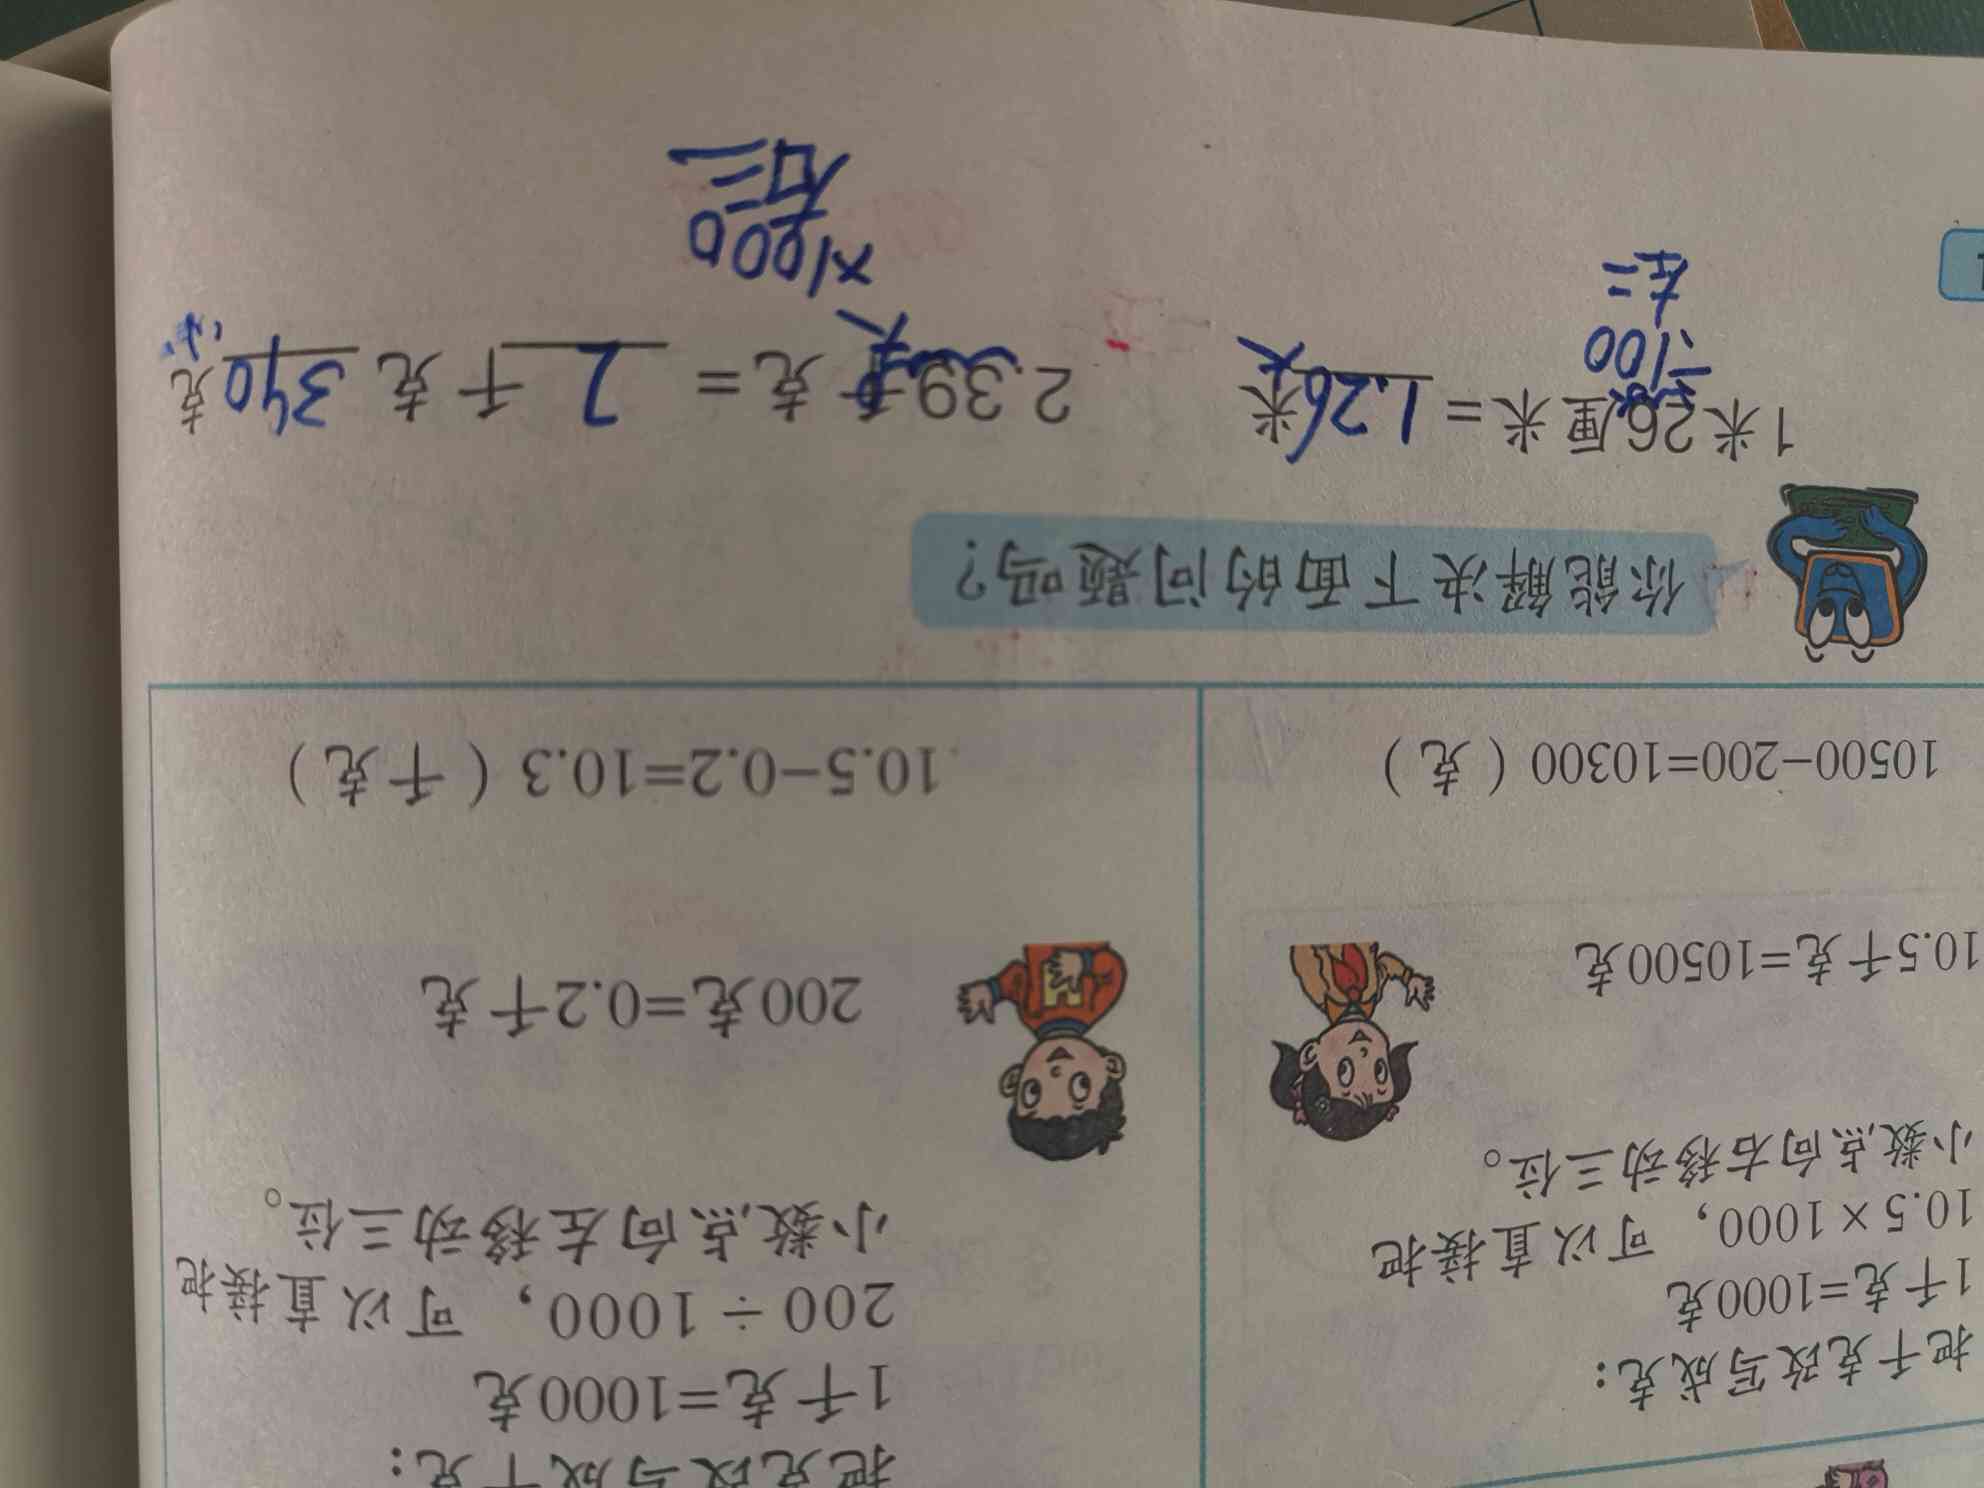 把千克改写成克：
1千克=1000克
10.5×1000，可以直接把
小数点向右移动三位。
10.5千克=10500克
10500-200=10300（克）
把克改写成千克：
1千克=1000克
200 ÷ 1000，可以直接把
小数点向左移动三位。
200克=0.2千克
10.5-0.2=10.3（千克）
你能解决下面的问题吗？
1米26厘米=1.26米
大
÷100
左二
2.39千克=2千克390克
大
小
×1000
右三